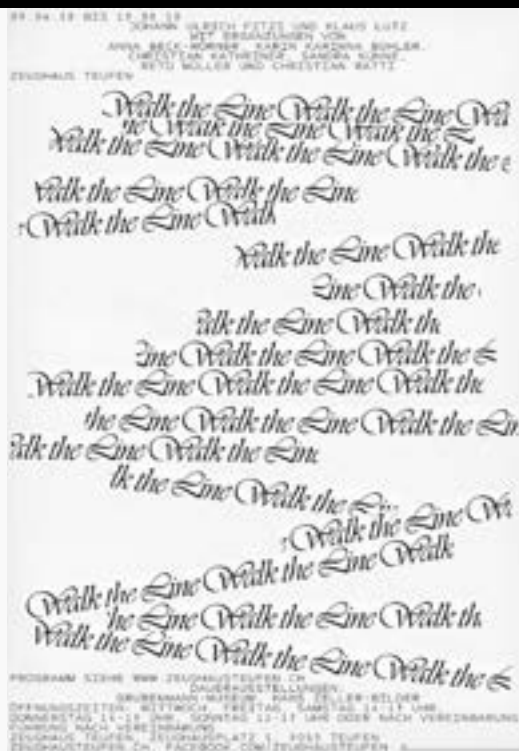 09.04.18 BIS 19.08.18
JOHANN ULRICH FITZI UND KLAUS LUTZ
MIT ERGÄNZUNGEN VON
ANNA BECK-WÖRNER, KARIN KARINNA BÜHLER,
CHRISTIAN KATHRINER, SANDRA KÜHNE,
RETO MÜLLER UND CHRISTIAN RATTI
ZEUGHAUS TEUFEN
Walk the Line Walk the Line Wa
ne Walk the Line Walk the L
Walk the Line Walk the Line Walk the
Walk the Line Walk the Line
Walk the Line Walk
Walk the Line Walk the
Line Walk the
alk the Line Walk th
Line Walk the Line Walk the L
Walk the Line Walk the Line Walk the
the Line Walk the Line Walk the Lin
alk the Line Walk the Line
lk the Line Walk the Li
Walk the Line Wa
Walk the Line Walk the Line Walk
he Line Walk the Line Walk th
Walk the Line Walk the Line Walk the L
PROGRAMM SIEHE WWW.ZEUGHAUSTEUFEN.CH
DAUERAUSSTELLUNGEN:
GRUBENMANN-MUSEUM, HANS ZELLER-BILDER
ÖFFNUNGSZEITEN: MITTWOCH, FREITAG, SAMSTAG 14-17 UHR,
DONNERSTAG 14-19 UHR, SONNTAG 12-17 UHR ODER NACH VEREINBARUNG
FÜHRUNG NACH VEREINBARUNG
ZEUGHAUS TEUFEN, ZEUGHAUSPLATZ 1, 9053 TEUFEN
ZEUGHAUSTEUFEN.CH, FACEBOOK.COM/ZEUGHAUSTEUFEN